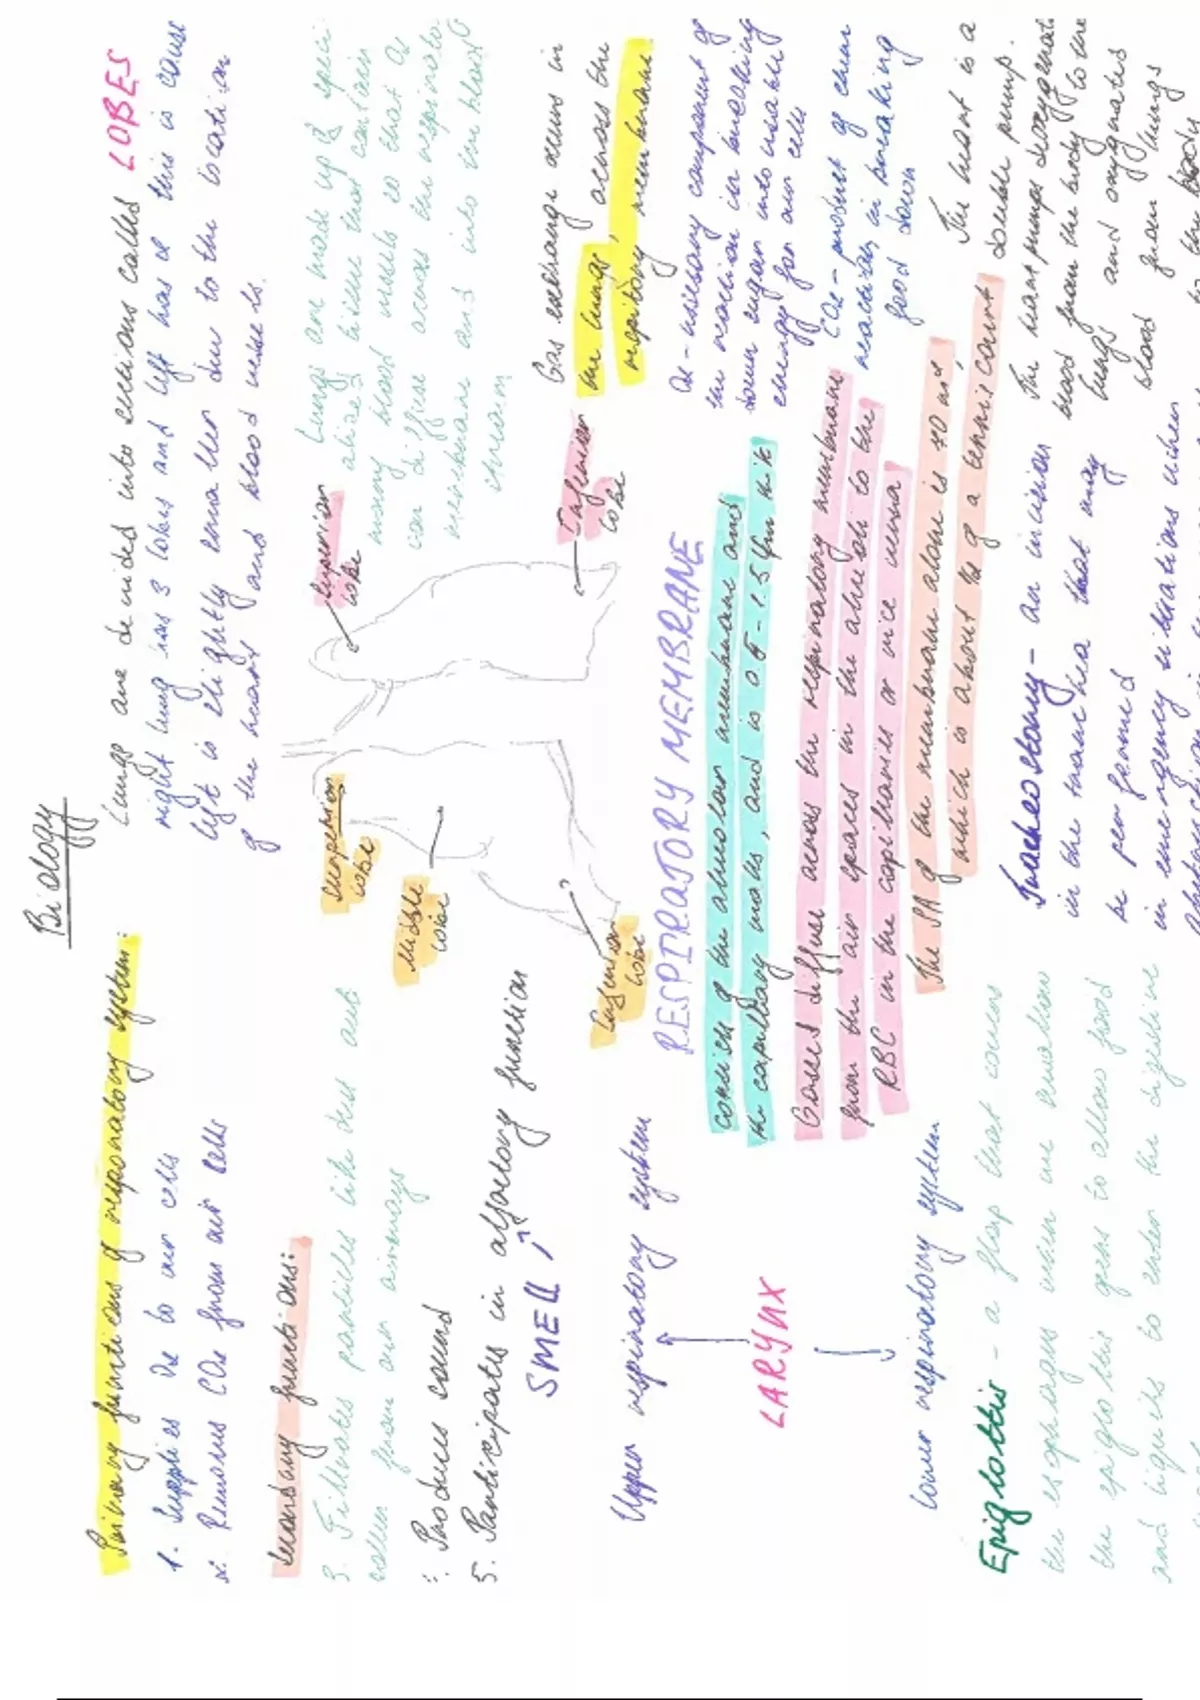 Biology
Primary functions of respiratory system:
1. Supplies O2 to our cells
2. Removes CO2 from our cells
Secondary functions:
3. Filtrates particles like dust and
pollen from our airways
Produces sound
5. Participates in olfactory function
SMELL
Upper respiratory system
LARYNX
Lower respiratory system
Epiglottis - a flap that covers
the esophagus when we swallow
the epiglottis opens to allow food
and liquids to enter the digestive
Lungs are devided into sections called LOBES
right lung has 3 lobes and left has 2 this is cause
left is slightly smaller due to the location
of the heart and blood vessels.
Superior
lobe
Middle
lobe
Inferior
lobe
Superior
lobe
Inferior
lobe
Lungs are made up of speci
tissue that contain
many blood vessels so that O2
can diffuse across the respirato
membrane and into the blood
stream
Gas exchange occurs in
the lungs, across the
respitory membrane.
RESPIRATORY MEMBRANE
consists of the alveolar membrane and
the capillary walls, and is 0.5 - 1.5 µm thik
Gasses diffuse across the respiratory membrane
from the air spaces in the alveoli to the
RBC in the capillaries or vice versa
The SA of the membrane alone is 70 m2,
which is about 1/2 of a tennis court
O2 - necessary component of
the reaction for breaking
down sugar into usable
energy for our cells
CO2 - product of chem
reaction in breaking
food down
The heart is a
double pump.
The heart pumps deoxygenat
blood from the body to the
lungs and oxygnates
blood from lungs
to the body
Tracheostomy - an incision
in the trachea that may
be performed
in emergency situations when